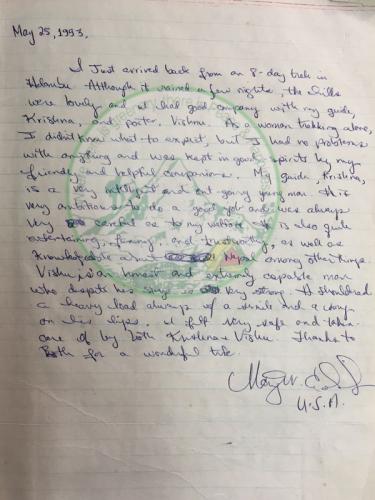 May 25, 1993.
I Just arrived back from an 8-day trek in
Helambu. Although it rained a few nights, the hills
were lovely and I had good company with my guide,
Krishna, and porter, Vishnu. As a woman trekking alone,
I didn't know what to expect, but I had no problems
with anything and was kept in good spirits by my
friendly and helpful companions. My guide, Krishna,
is a very intelligent and out going young man. He is
very ambitious to do a good job and was always
very careful as to my welfare. He is also quite
entertaining, funny, and trustworthy, as well as
knowledgeable about Nepal among other things.
Vishnu is an honest and extremely capable man
who despite his size is very strong. He shouldered
a heavy load always w/ a smile and a song
on his lips. I felt very safe and taken
care of by both Krishna & Vishnu. Thanks to
Both for a wonderful trek.
U.S.A.